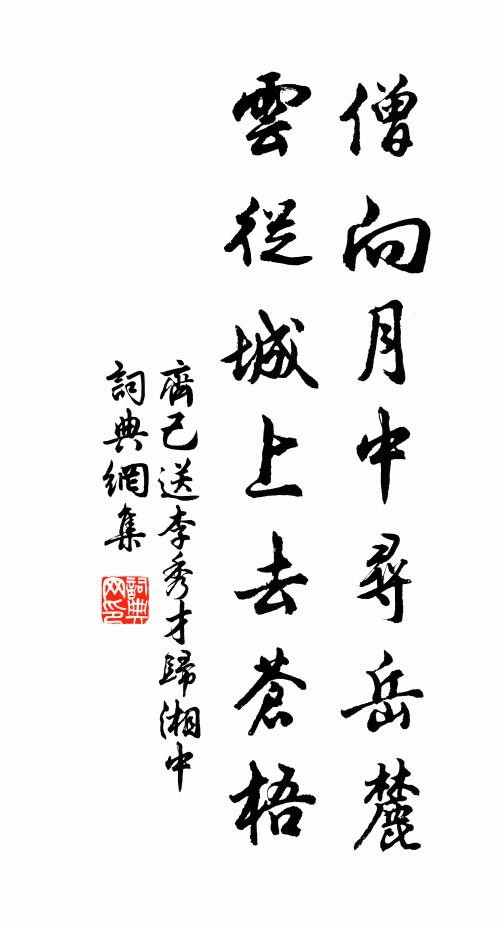 僧向月中尋岳麓
雲從城上去蒼梧
齊己送李秀才歸湘中
詞典網集
詞典網印